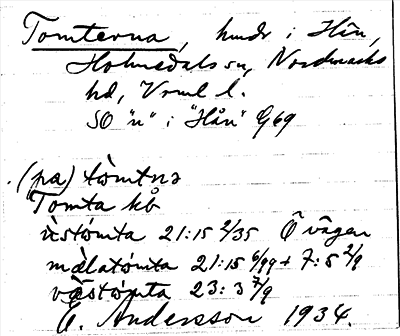 Tomterna, hmdr i Hån,
Holmedals sn, Nordmarks
hd, Vrml l.
SO "n" i "Hån" G69
(pa) tòmtnə
Tomta hå
ùstómta 21:15 2/35 Ö vägen
mèlatómta 21:15 6/99 + 7:8 2/9
vèstómta 23:3 7/9
E. Andersson 1934.